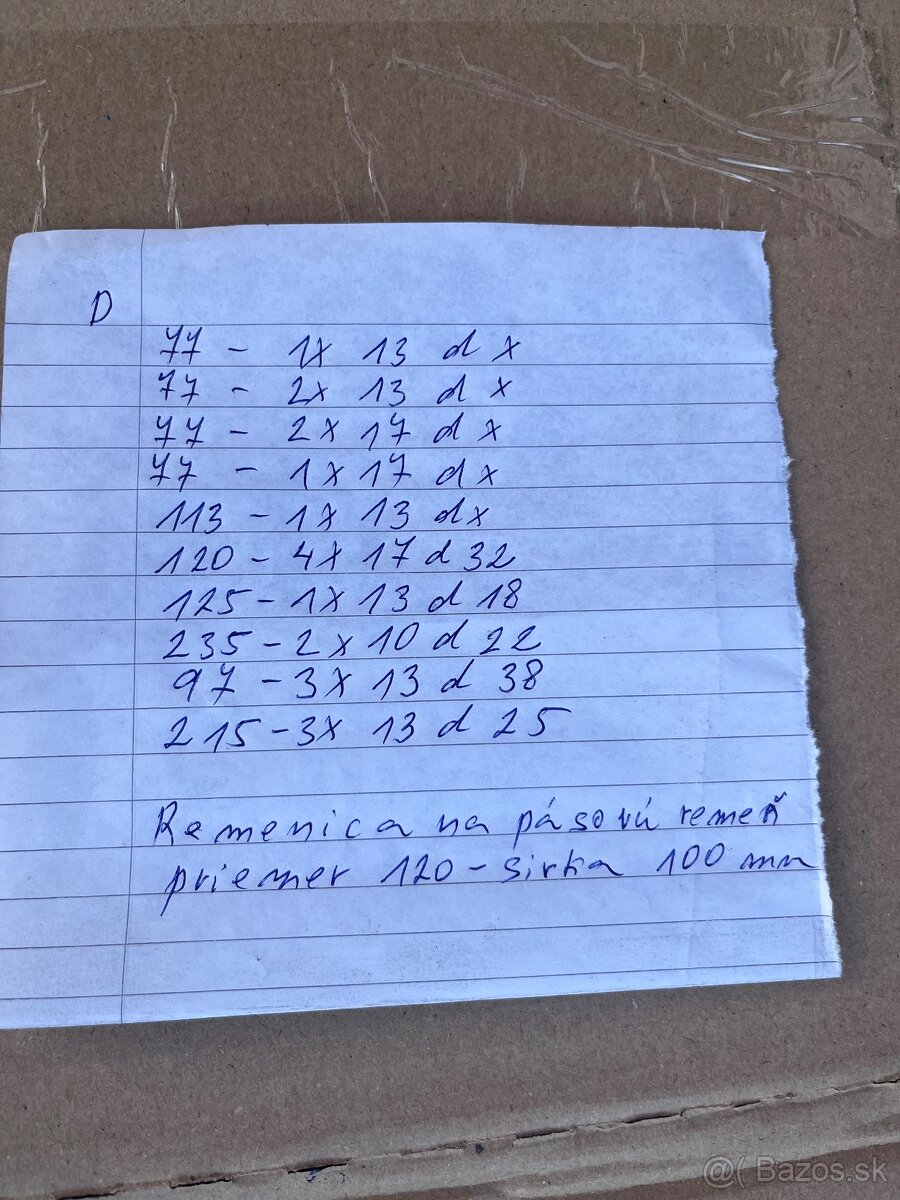 D
77 - 1x 13 d x
77 - 2x 13 d x
77 - 2x 17 d x
77 - 1x 17 d x
113 - 1x 13 d x
120 - 4x 17 d 32
125 - 1x 13 d 18
235 - 2x 10 d 22
97 - 3x 13 d 38
215 - 3x 13 d 25
Remenica na pásovú remeň
priemer 120 - sirka 100 mm
@( Bazos.sk